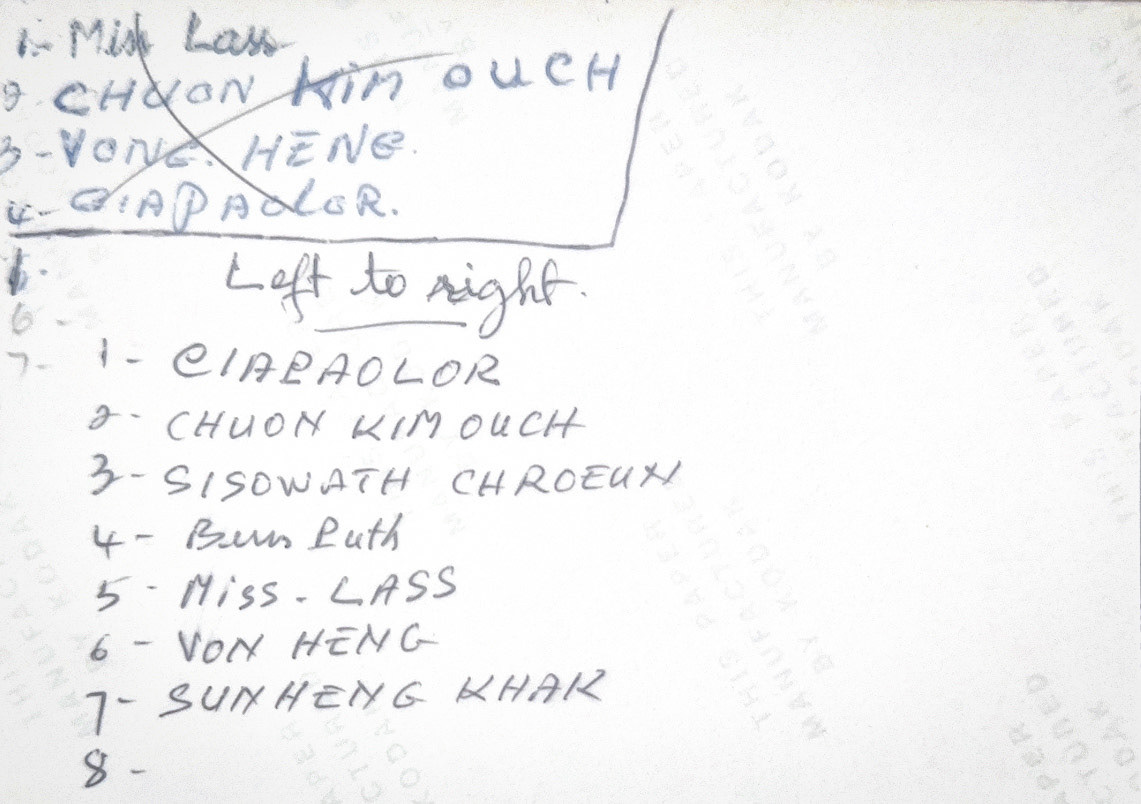 1- Miss Lass
2 CHUON KIM OUCH
3-VONG. HENG.
4- CIAPAOLOR.
1-
Left to right.
6-
7-
1- CIAPAOLOR
2- CHUON KIM OUCH
3- SISOWATH CHROEUN
4- Bun Puth
5- Miss. LASS
6- VON HENG
7- SUNHENG KHAK
8-
THIS PAPER
MANUFACTURED
BY KODAK